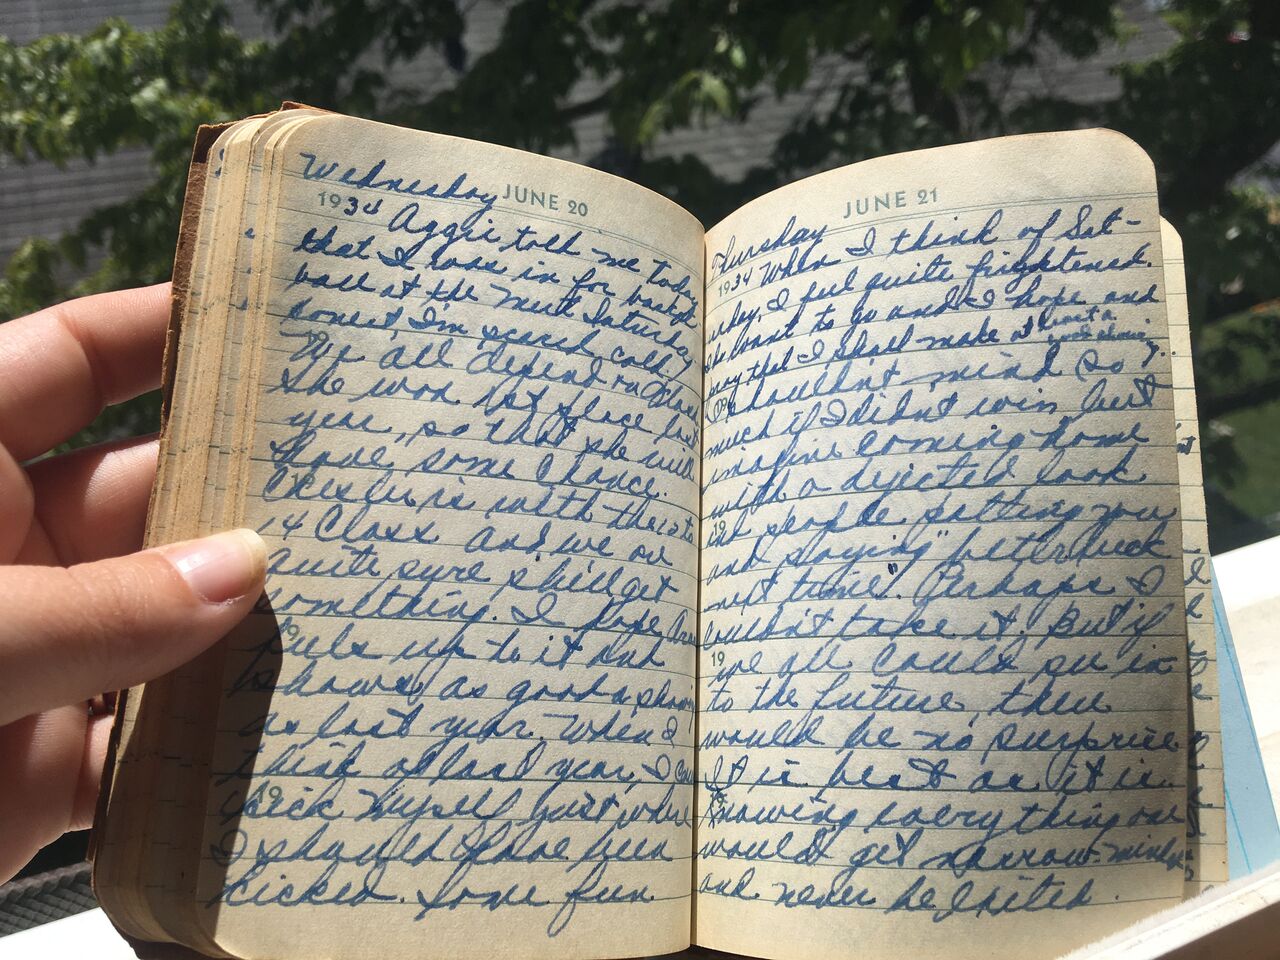 Wednesday JUNE 20
1934 Aggie told me today
that I was in for baseb
ball at the meet Saturday
honest, I'm scared cold.
We all depend on
She won 1st place last
year, so that she will
have some chance.
is with the 12 to
14 Class and we are
quite sure she'll get
something. I hope
pulls up to it and
shows as good a showin
as last year. When I
think of last year, I can
kick myself just where
I should have been
kicked. Some fun.
JUNE 21
Thursday
1934 When I think of Sat-
urday, I feel quite frightened.
I do want to go and I hope and
pray that I shall make at least a
good showing.
I shouldn't mind so
much if I didn't win but
imagine coming home
with a dejected look
and people patting you
and saying "better luck
next time". Perhaps I
couldn't take it. But if
we all could see in-
to the future, there
would be no surprise.
It is best as it is.
Knowing everything one
would get narrow-minded
and never be excited.